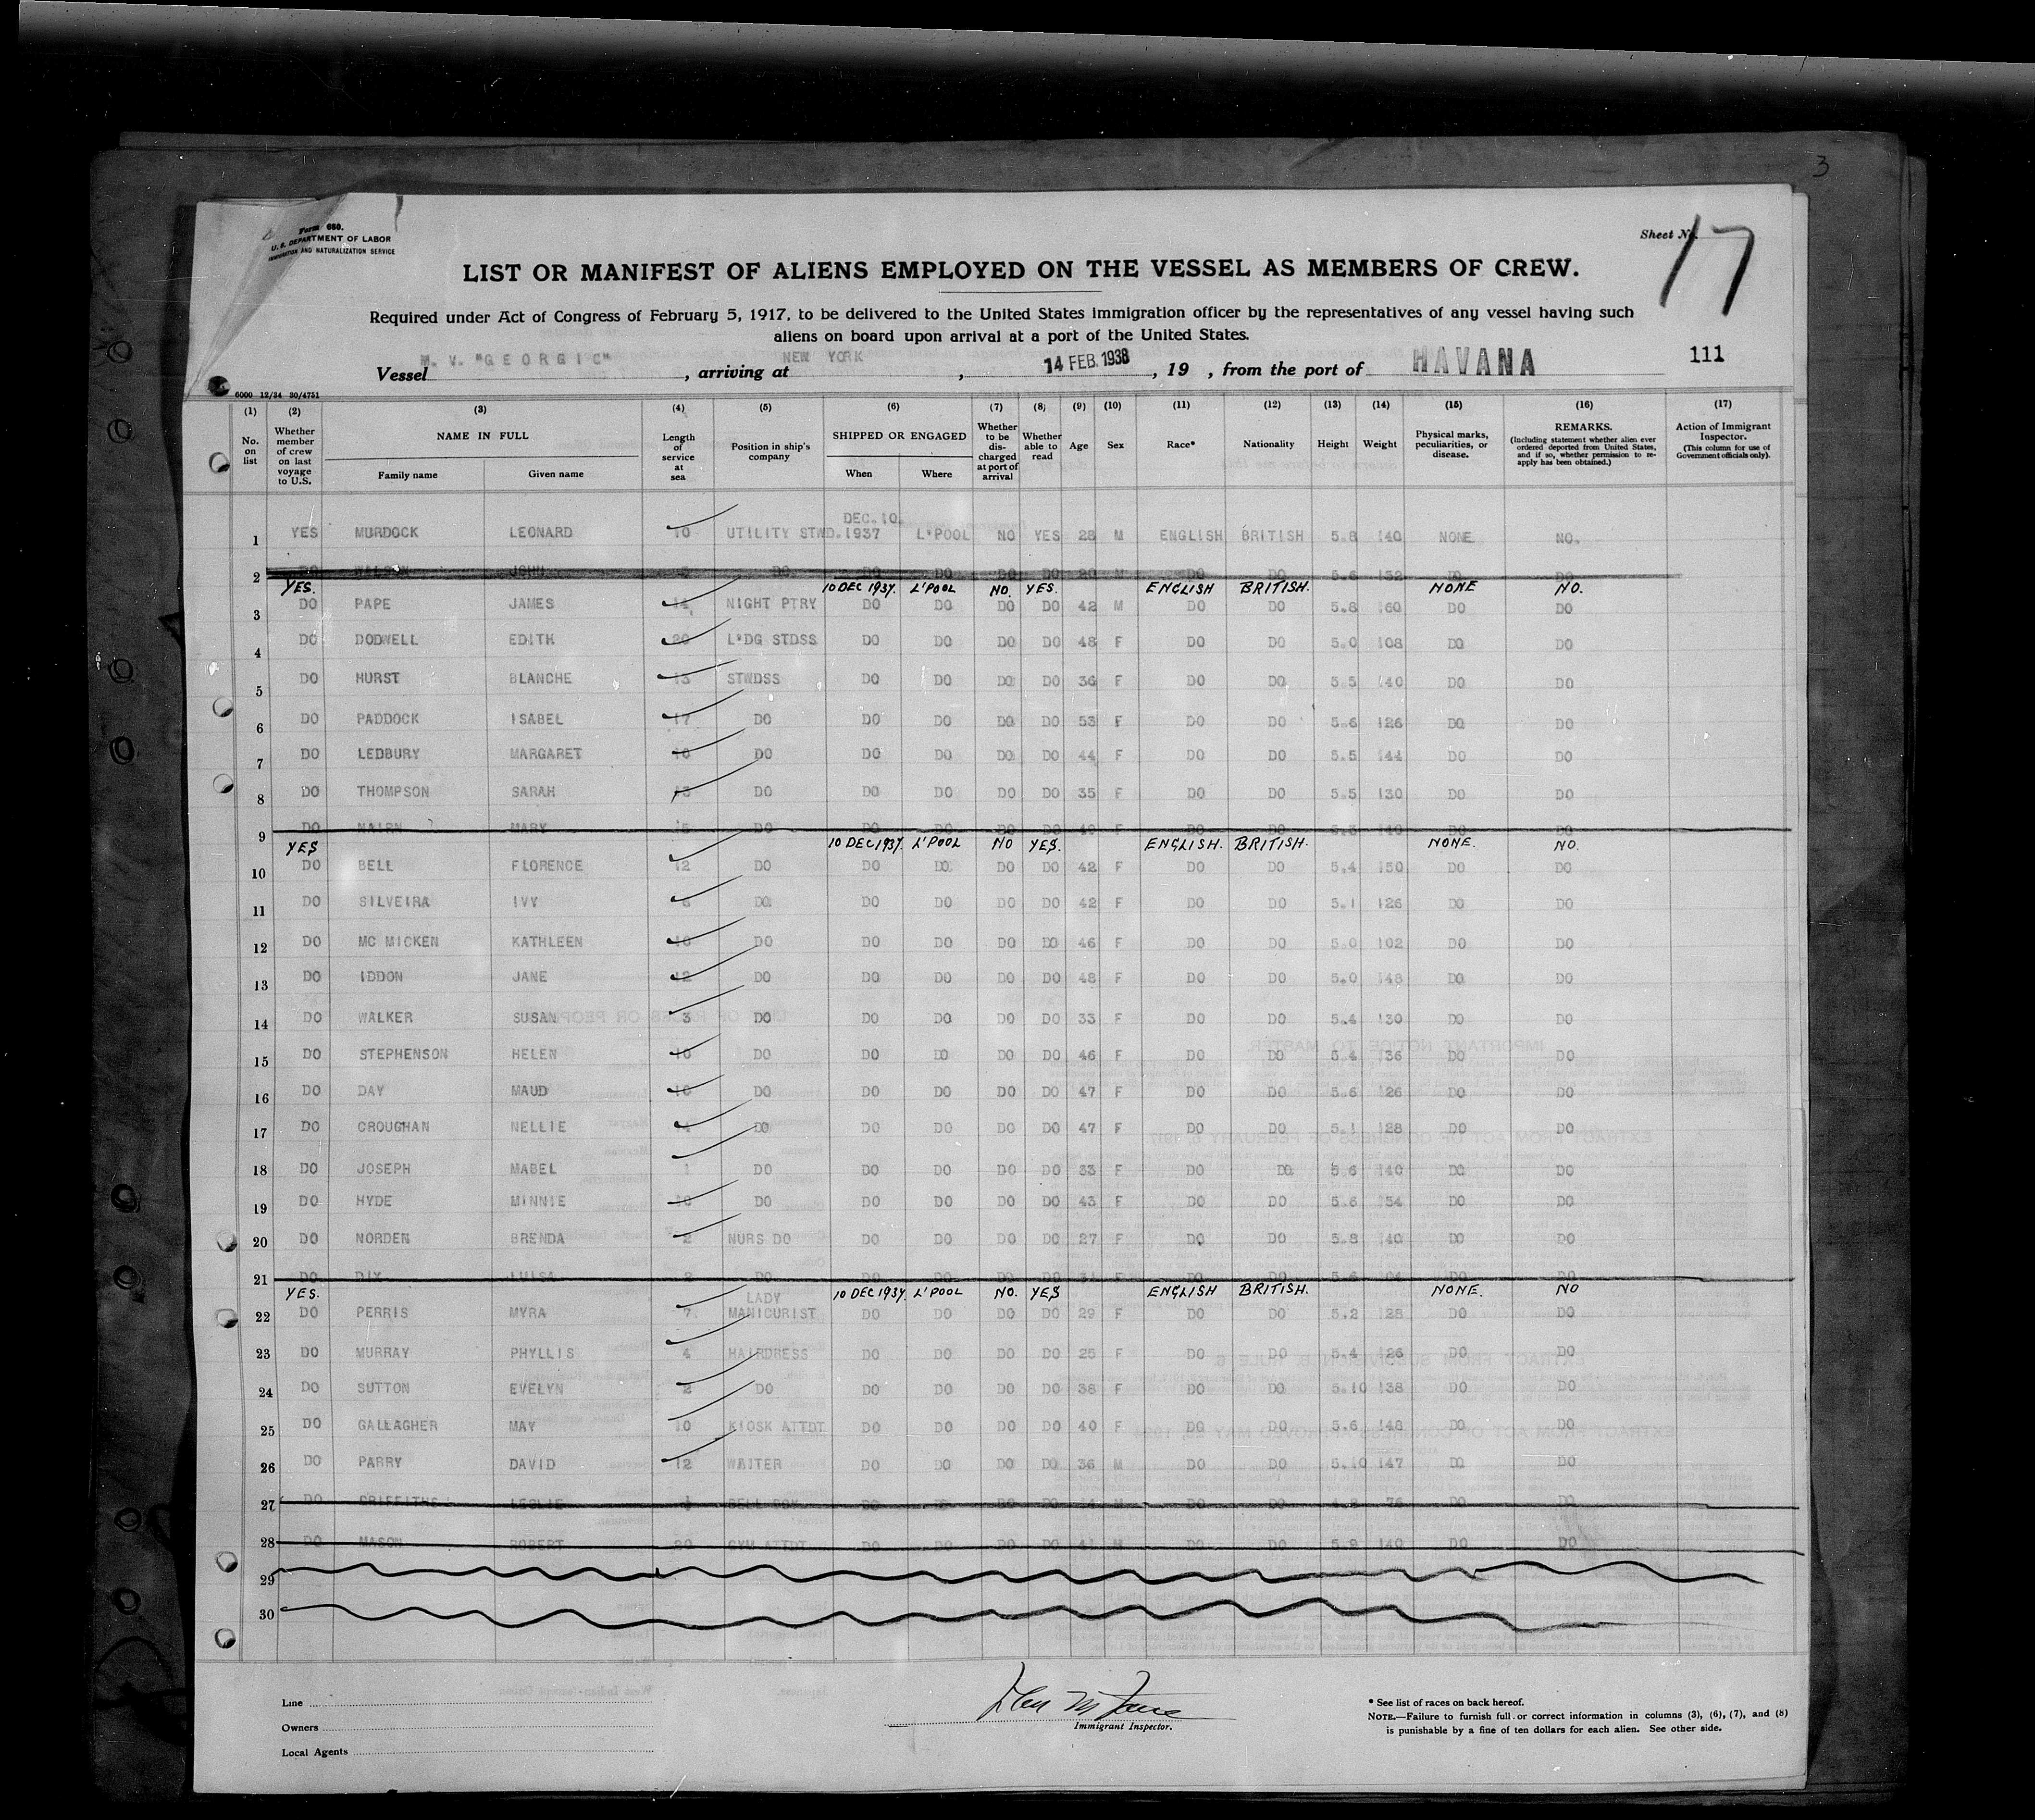 3
Form 680.
U. S. DEPARTMENT OF LABOR
IMMIGRATION AND NATURALIZATION SERVICE
Sheet No. 17
LIST OR MANIFEST OF ALIENS EMPLOYED ON THE VESSEL AS MEMBERS OF CREW.
Required under Act of Congress of February 5, 1917, to be delivered to the United States immigration officer by the representatives of any vessel having such
aliens on board upon arrival at a port of the United States.
111
Vessel M. V. "GEORGIC", arriving at NEW YORK, 14 FEB. 1938, 19 , from the port of HAVANA
6000 12/34 30/4751
(1) (2) (3) (4) (5) (6) (7) (8) (9) (10) (11) (12) (13) (14) (15) (16) (17)
No. on list Whether member of crew on last voyage to U.S. NAME IN FULL Family name Given name Length of service at sea Position in ship's company SHIPPED OR ENGAGED When Where Whether to be discharged at port of arrival Whether able to read Age Sex Race* Nationality Height Weight Physical marks, peculiarities, or disease. REMARKS. (Including statement whether alien ever ordered deported from United States, and if so, whether permission to reapply has been obtained.) Action of Immigrant Inspector. (This column for use of Government officials only).
1 YES MURDOCK LEONARD 10 UTILITY STWD. DEC. 10. 1937 L'POOL NO YES 28 M ENGLISH BRITISH 5.8 140 NONE NO.
2 DO WALSON JOHN DO DO DO DO DO M DO DO 5.6 132 DO DO
YES. 10 DEC 1937. L'POOL NO. YES. ENGLISH BRITISH. NONE NO.
3 DO PAPE JAMES 14 NIGHT PTRY DO DO DO DO 42 M DO DO 5.8 160 DO DO
4 DO DODWELL EDITH 20 L'DG STDSS DO DO DO DO 48 F DO DO 5.0 108 DO DO
5 DO HURST BLANCHE 13 STWDSS DO DO DO DO 36 F DO DO 5.5 140 DO DO
6 DO PADDOCK ISABEL 17 DO DO DO DO DO 53 F DO DO 5.6 126 DO DO
7 DO LEDBURY MARGARET 10 DO DO DO DO DO 44 F DO DO 5.5 144 DO DO
8 DO THOMPSON SARAH DO DO DO DO DO 35 F DO DO 5.5 130 DO DO
9 DO NAIRN MARY DO DO DO DO DO 40 F DO DO 140 DO DO
YES 10 DEC 1937. L'POOL NO YES. ENGLISH. BRITISH. NONE. NO.
10 DO BELL FLORENCE 12 DO DO DO DO DO 42 F DO DO 5.4 150 DO DO
11 DO SILVEIRA IVY DO DO DO DO DO 42 F DO DO 5.1 126 DO DO
12 DO MC MICKEN KATHLEEN 10 DO DO DO DO DO 46 F DO DO 5.0 102 DO DO
13 DO IDDON JANE 12 DO DO DO DO DO 48 F DO DO 5.0 148 DO DO
14 DO WALKER SUSAN 3 DO DO DO DO DO 33 F DO DO 5.4 130 DO DO
15 DO STEPHENSON HELEN 10 DO DO DO DO DO 46 F DO DO 5.4 136 DO DO
16 DO DAY MAUD 10 DO DO DO DO DO 47 F DO DO 5.6 126 DO DO
17 DO CROUGHAN NELLIE DO DO DO DO DO 47 F DO DO 5.1 128 DO DO
18 DO JOSEPH MABEL 1 DO DO DO DO DO 33 F DO DO 5.6 140 DO DO
19 DO HYDE MINNIE 10 DO DO DO DO DO 43 F DO DO 5.6 154 DO DO
20 DO NORDEN BRENDA 2 NURS DO DO DO DO DO 27 F DO DO 5.8 140 DO DO
21 DO DIX LUISA 2 DO DO DO DO DO 31 F DO DO 5.6 DO DO
YES. 10 DEC 1937. L'POOL NO. YES ENGLISH BRITISH. NONE. NO
22 DO PERRIS MYRA 7 LADY MANICURIST DO DO DO DO 29 F DO DO 5.2 128 DO DO
23 DO MURRAY PHYLLIS 4 HAIRDRESS DO DO DO DO 25 F DO DO 5.4 126 DO DO
24 DO SUTTON EVELYN 2 DO DO DO DO DO 38 F DO DO 5.10 138 DO DO
25 DO GALLAGHER MAY 10 KIOSK ATTDT DO DO DO DO 40 F DO DO 5.6 148 DO DO
26 DO PARRY DAVID 12 WAITER DO DO DO DO 36 M DO DO 5.10 147 DO DO
27 DO GRIFFITHS LESLIE BELL BOY DO DO DO DO M DO DO 76 DO DO
28 DO MASON ROBERT 20 GYM ATTDT DO DO DO DO 41 M DO DO 5.9 140 DO DO
29
30
Line
Owners
Local Agents
Immigrant Inspector.
* See list of races on back hereof.
NOTE.—Failure to furnish full or correct information in columns (3), (6), (7), and (8)
is punishable by a fine of ten dollars for each alien. See other side.